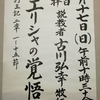 月十七日(日)午前十時三十
説教者 古川弘幸 牧
エリシャの覚悟
列王記上 章 一十五節